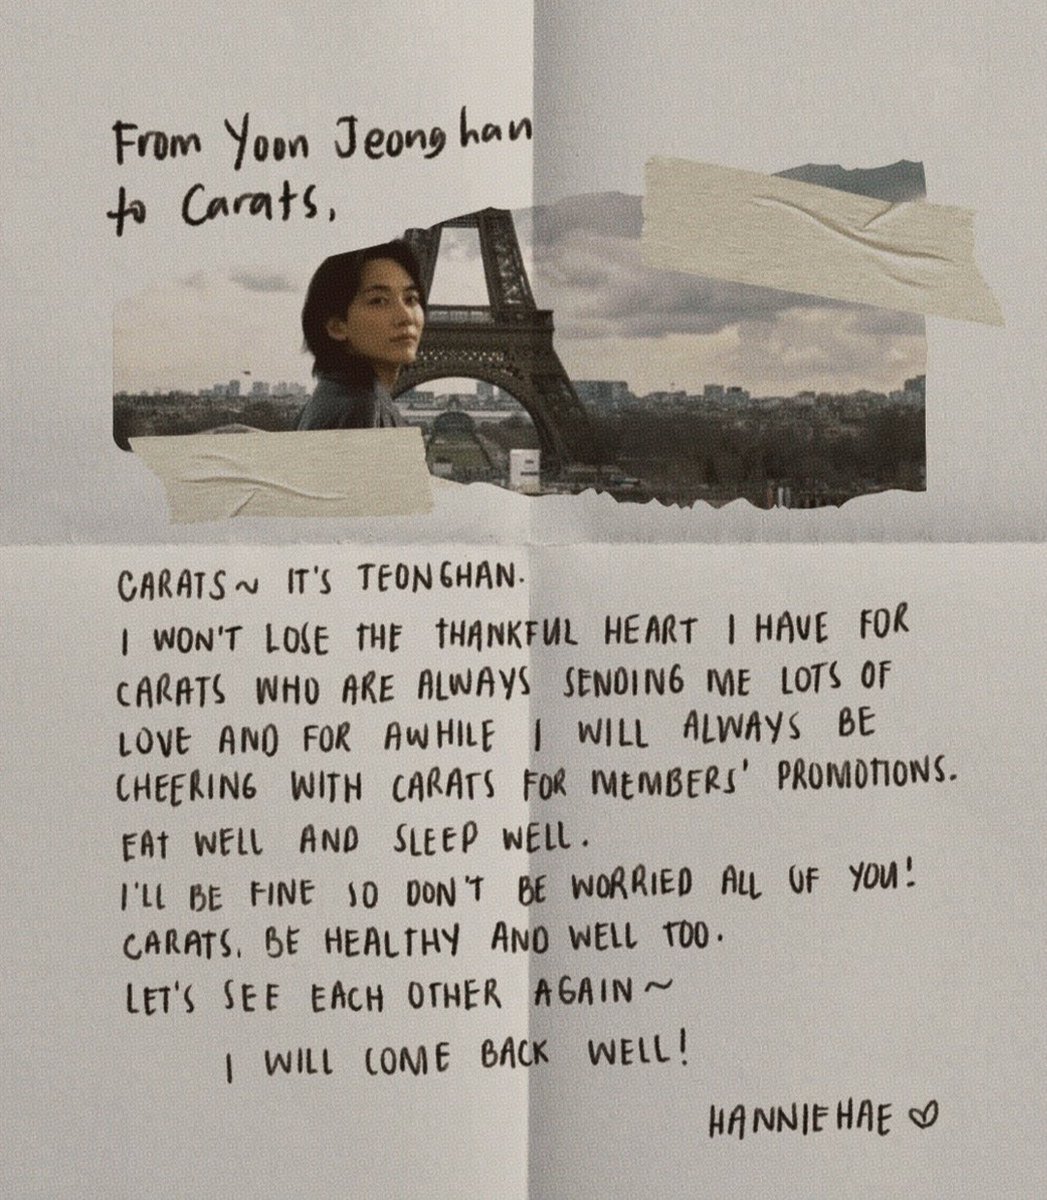 From Yoon Jeonghan
to Carats,
CARATS~ IT'S TEONGHAN.
I WON'T LOSE THE THANKFUL HEART I HAVE FOR
CARATS WHO ARE ALWAYS SENDING ME LOTS OF
LOVE AND FOR AWHILE I WILL ALWAYS BE
CHEERING WITH CARATS FOR MEMBERS' PROMOTIONS.
EAT WELL AND SLEEP WELL.
I'LL BE FINE SO DON'T BE WORRIED ALL OF YOU!
CARATS, BE HEALTHY AND WELL TOO.
LET'S SEE EACH OTHER AGAIN~
I WILL COME BACK WELL!
HANNIEHAE ♡